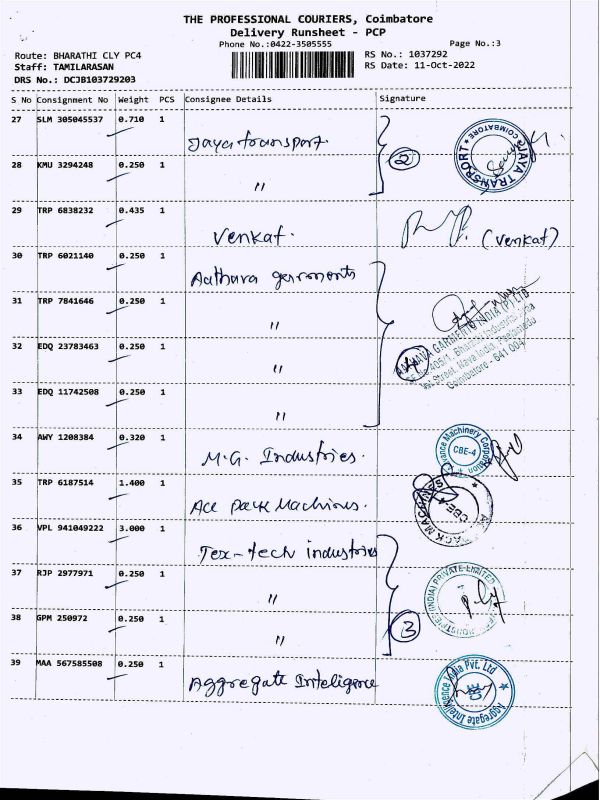 THE PROFESSIONAL COURIERS, Coimbatore
Delivery Runsheet - PCP
Phone No.:0422-3505555 Page No.:3
Route: BHARATHI CLY PC4 RS No.: 1037292
Staff: TAMILARASAN RS Date: 11-Oct-2022
DRS No.: DCJB103729203
S No Consignment No Weight PCS Consignee Details Signature
27 SLM 305045537 0.710 1 Jaya transport. 2 JAYA TRANSPORT COIMBATORE
28 KMU 3294248 0.250 1 "
29 TRP 6838232 0.435 1 Venkat. (Venkat)
30 TRP 6021140 0.250 1 Aathava garments
31 TRP 7841646 0.250 1 " 4 AATHAVA GARMENTS INDIA (P) LTD
32 EDQ 23783463 0.250 1 "
Coimbatore - 641 004
33 EDQ 11742508 0.250 1 "
34 AWY 1208384 0.320 1 M.G. Industries. Machinery Corporation CBE-4
35 TRP 6187514 1.400 1 Ace pack Machines. PACK MACHINES CBE
36 VPL 941049222 3.000 1 Tex-tech industries
37 RJP 2977971 0.250 1 " INDUSTRIES (INDIA) PRIVATE LIMITED
38 GPM 250972 0.250 1 " 3
39 MAA 567585508 0.250 1 Aggregate Inteligence Aggregate Intelligence India Pvt. Ltd